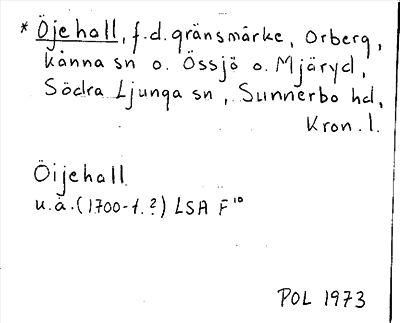 * Öjehall, f.d. gränsmärke, Orberg,
Kånna sn o. Össjö o. Mjäryd,
Södra Ljunga sn, Sunnerbo hd,
Kron. l.
Öijehall
u.å. (1700-t.?) LSA F¹⁰
POL 1973